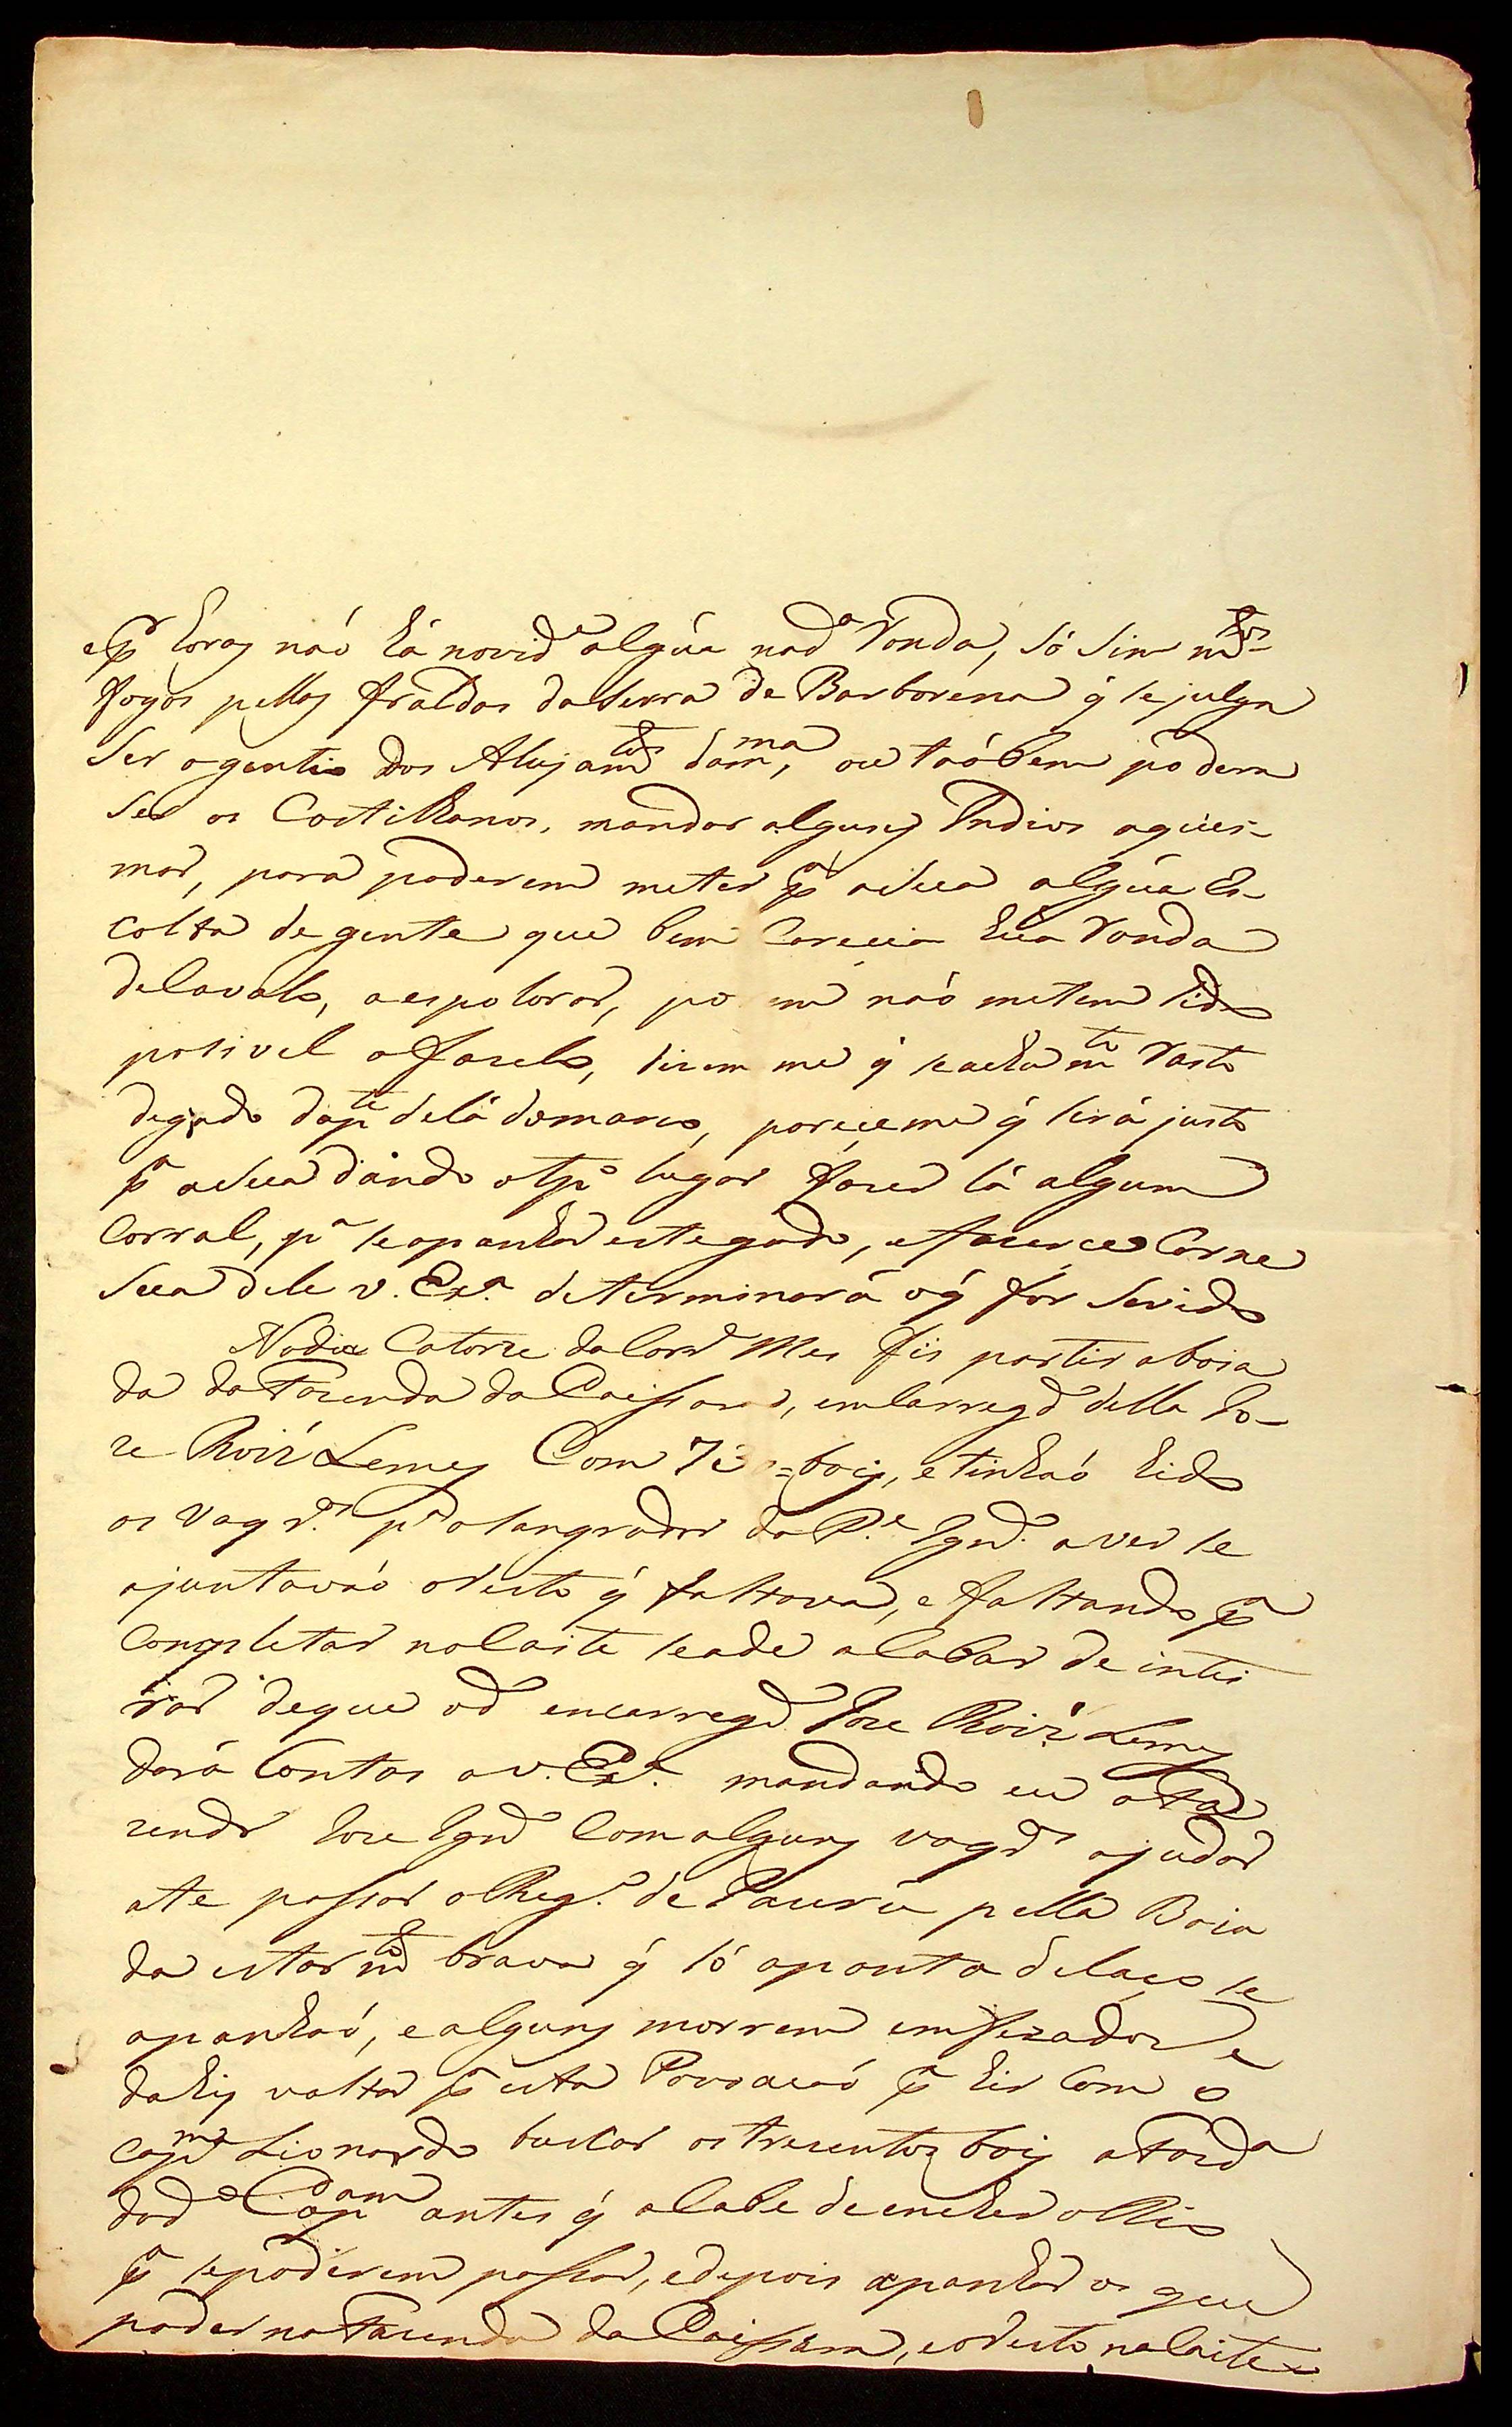 e p.ª horas naó há novid.ᵉ algúa na d.ª Ronda, só sim m.ᵗᵒˢ
fogos pellas fraldas da Serra de Barborena q̃ se julga
Ser o gentio dos Alujam.ᵗᵒˢ da m.ᵐᵃ, ou taóbem podem
Ser os Castilhanos, mandar alguns Indios aquei-
mar, para poderem meter p.ª a sua algúa Es-
colta de gente que bem Carecia húa Ronda
de Cavalo, a espolorar, porem naó me tem sido
posivel o fazelo, dizem me q̃ se acha m.ᵗᵒ Rasto
de gado da p.ᵗᵉ de lá do marco, pareceme q̃ será justo
p.ª a Seca dando o tp.º lugar fazer lá algum
Corral, p.ª se apanhar este gado, e fazerce Carne
Seca dele v. Ex.ª determinará o q̃ for Servido
No dia Catorze do Corr.ᵉ Mes fis partir a boia
da da Fazenda da Caissara, emCarregd.º della Jo-
ze Roiz' Lemes Com 73 = bois, e tinhaó hido
os Vaqr.ᵒˢ p.ª o Sangrador do P.ᵉ Ign.º a ver se
ajuntavaó o Resto q̃ faltava, e faltando p.ª
Completar no laite se a de acabar de intei
rar de que o d.º encarregd.º Joze Roiz' Lemes
dará Contas a v. Ex.ª mandando eu o Fa
zendr.º Joze Ign.º Com alguns vaqr.ᵒˢ ajudar
ate passar o Reg.º de Jaurú pella Boia
da estar m.ᵗᵒ brava q̃ só a ponta de laço se
apanhaó, e alguns morrem emfezados e
dahi voltar p.ª esta Povoacaó p.ª hir Com o
Cap.ᵐ Lionardo buscar os trezentos bois a Fazd.ª
do d.º Cap.ᵃᵐ antes q̃ acabe de encher o Rio
p.ª se poderem passar, e depois apanhar os que
poder na Fazenda da Caissara, e o Resto no laite